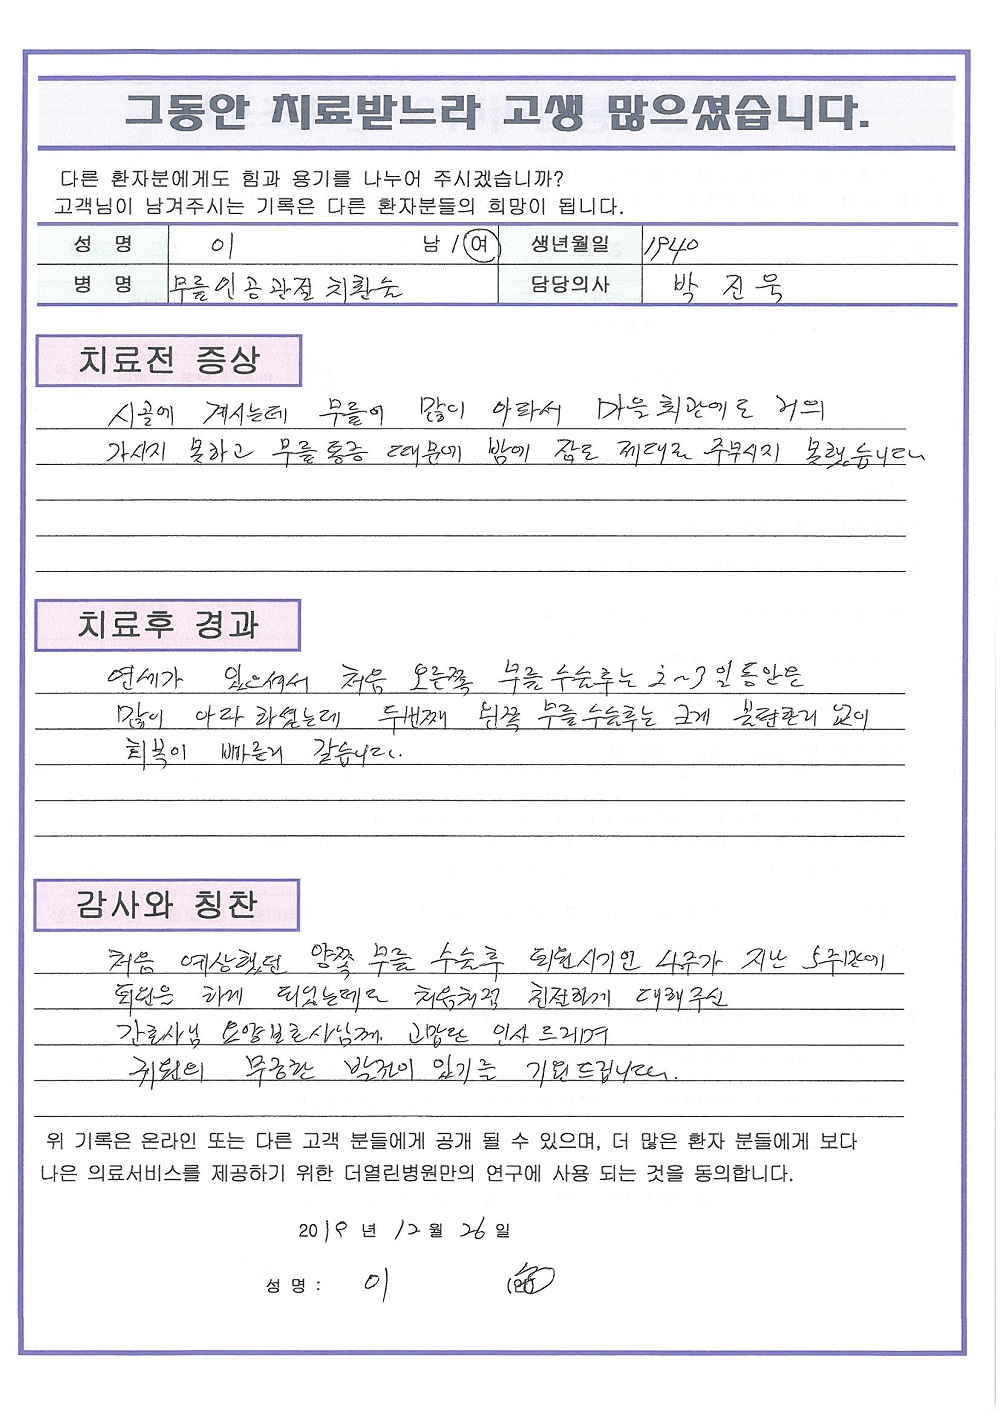 그동안 치료받느라 고생 많으셨습니다.
다른 환자분에게도 힘과 용기를 나누어 주시겠습니까?
고객님이 남겨주시는 기록은 다른 환자분들의 희망이 됩니다.
성 명 이 남 / 여 생년월일 1940
병 명 무릎인공관절치환술 담당의사 박 진 욱
치료전 증상
시골에 계시는데 무릎이 많이 아파서 마을회관에도 거의
가시지 못하고 무릎통증 때문에 밤에 잠도 제대로 주무시지 못했습니다
치료후 경과
연세가 있으셔서 처음 오른쪽 무릎수술후는 2~3일동안은
많이 아파 하셨는데 두번째 왼쪽 무릎수술후는 크게 불편한거 없이
회복이 빠른거 같습니다.
감사와 칭찬
처음 예상했던 양쪽 무릎 수술후 퇴원시기인 4주가 지난 5주만에
퇴원은 하게 되었는데도 처음처럼 친절하게 대해주신
간호사님 요양보호사님께 고맙단 인사 드리며
귀원의 무궁한 발전이 있기를 기원드립니다.
위 기록은 온라인 또는 다른 고객 분들에게 공개 될 수 있으며, 더 많은 환자 분들에게 보다
나은 의료서비스를 제공하기 위한 더열린병원만의 연구에 사용 되는 것을 동의합니다.
2019 년 12 월 26 일
성 명 : 이 (인)